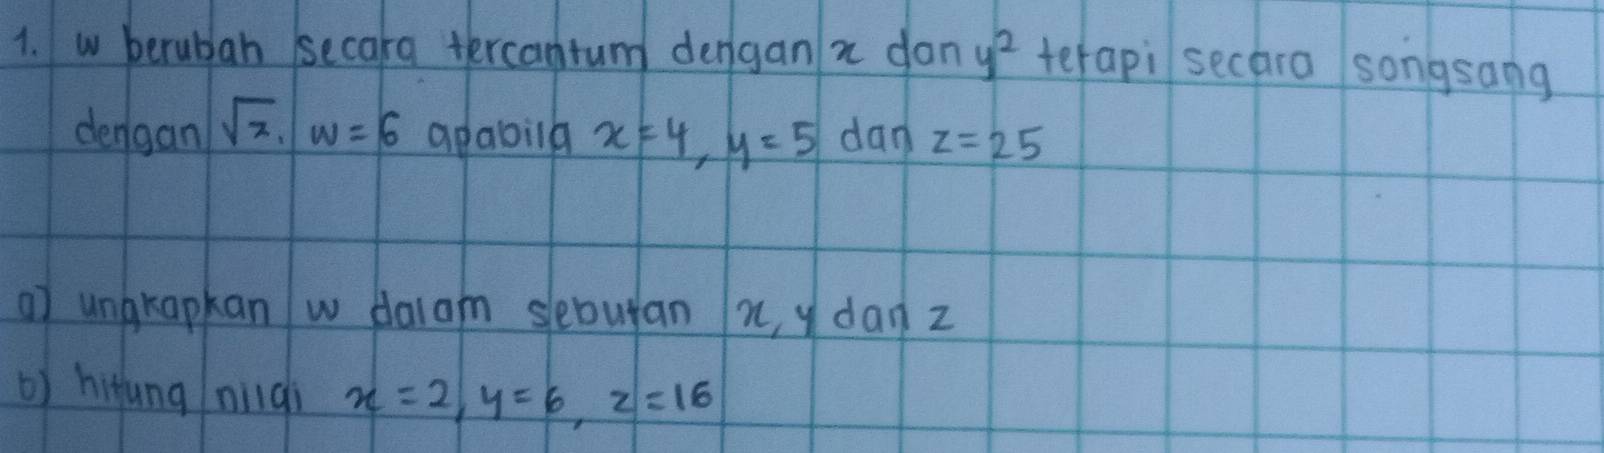 1. w berubah secara tercantum dengan x dan y² tetapi secara songsang
dengan √z. w = 6 apabila x = 4, y = 5 dan z = 25
a) ungkapkan w dalam sebutan x, y dan z
b) hitung nilai x = 2, y = 6, z = 16